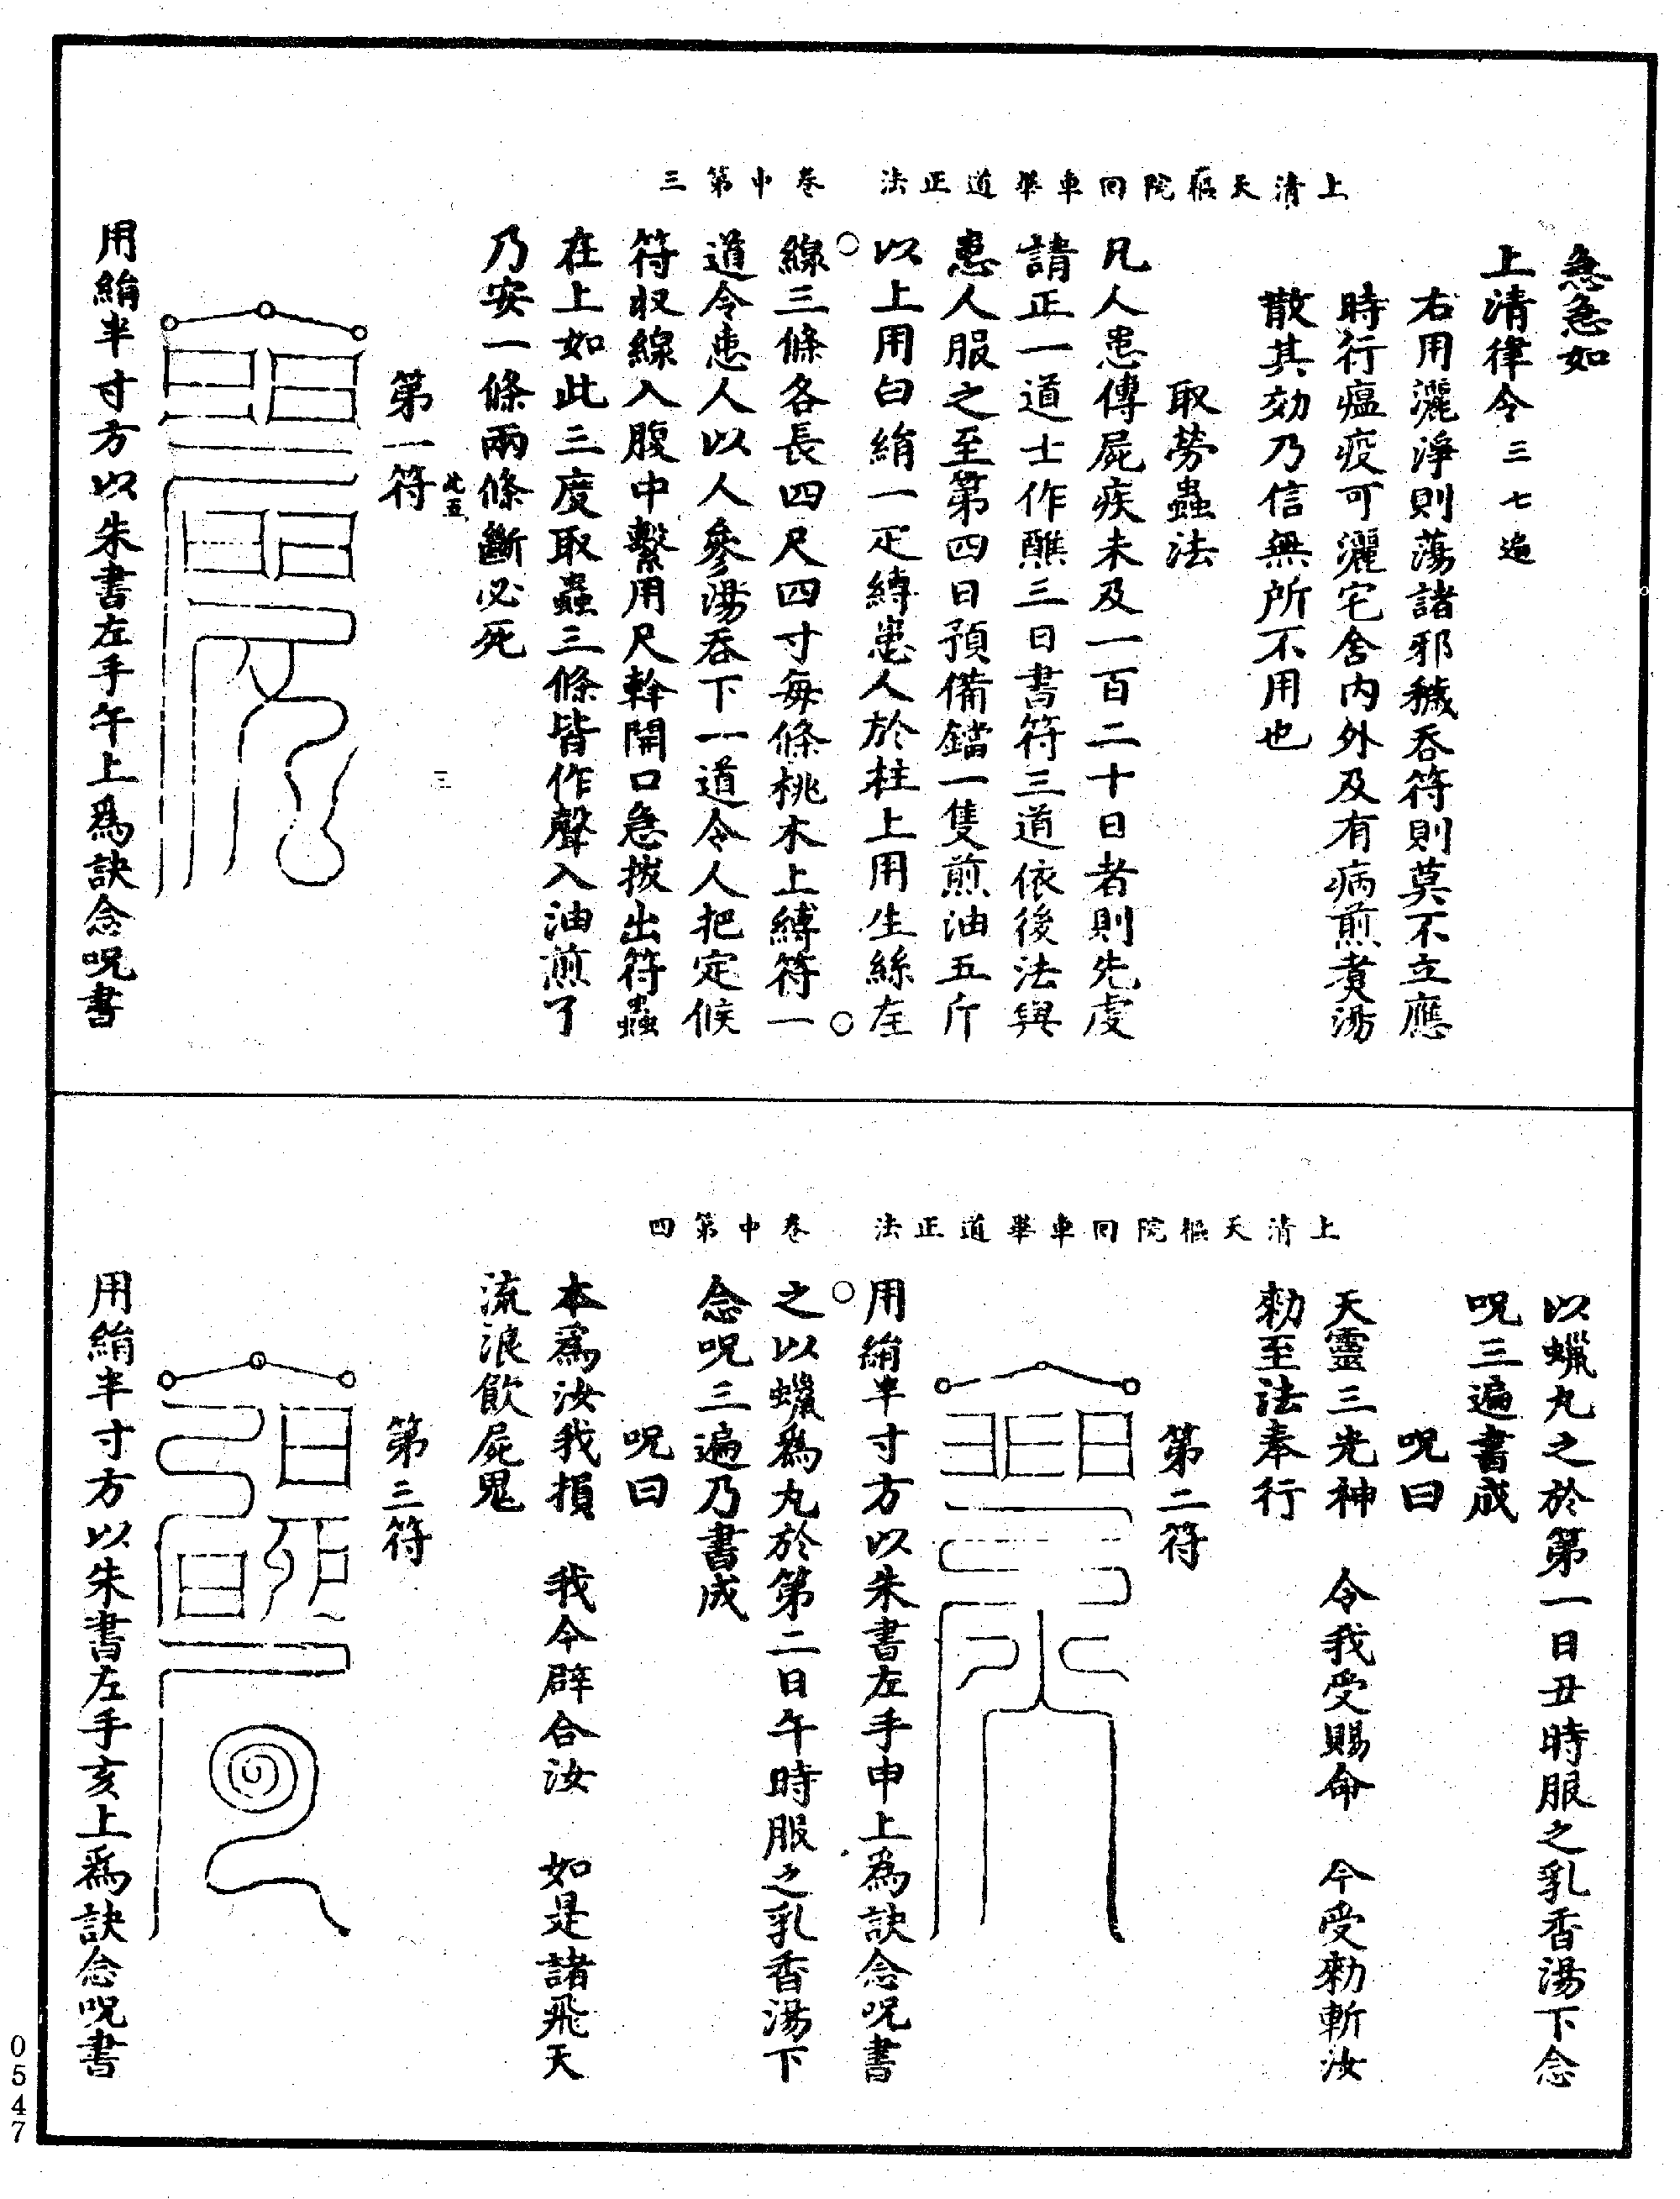 上清天樞院回車畢道正法　卷中第三
急急如
上清律令三七遍
右用灑淨則蕩諸邪穢吞符則莫不立應
時行瘟疫可灑宅舍內外及有病煎煑湯
散其効乃信無所不用也
取勞蟲法
凡人患傳屍疾未及一百二十日者則先虔
請正一道士作醮三日書符三道依後法與
患人服之至第四日預備鐺一隻煎油五斤
以上用白絹一疋縛患人於柱上用生絲左
線三條各長四尺四寸每條桃木上縛符一
道令患人以人參湯吞下一道令人把定候
符収線入腹中繫用尺幹開口急拔出符蟲
在上如此三度取蟲三條皆作聲入油煎了
乃安一條兩條斷必死
第一符
用絹半寸方以朱書左手午上爲訣念呪書
上清天樞院回車畢道正法　卷中第四
以蠟丸之於第一日丑時服之乳香湯下念
呪三遍書成
呪曰
天靈三光神　令我受賜命　今受勑斬汝
勑至法奉行
第二符
用絹半寸方以朱書左手申上爲訣念呪書
之以蠟爲丸於第二日午時服之乳香湯下
念呪三遍乃書成
呪曰
本爲汝我損　我今辟合汝　如是諸飛天
流浪飲屍鬼
第三符
用絹半寸方以朱書左手亥上爲訣念呪書
0547